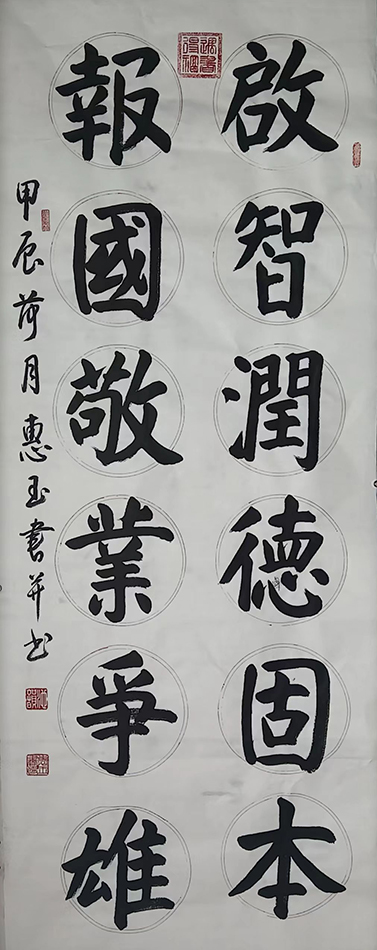 啟智潤德固本
報國敬業爭雄
甲辰荷月惠玉書并